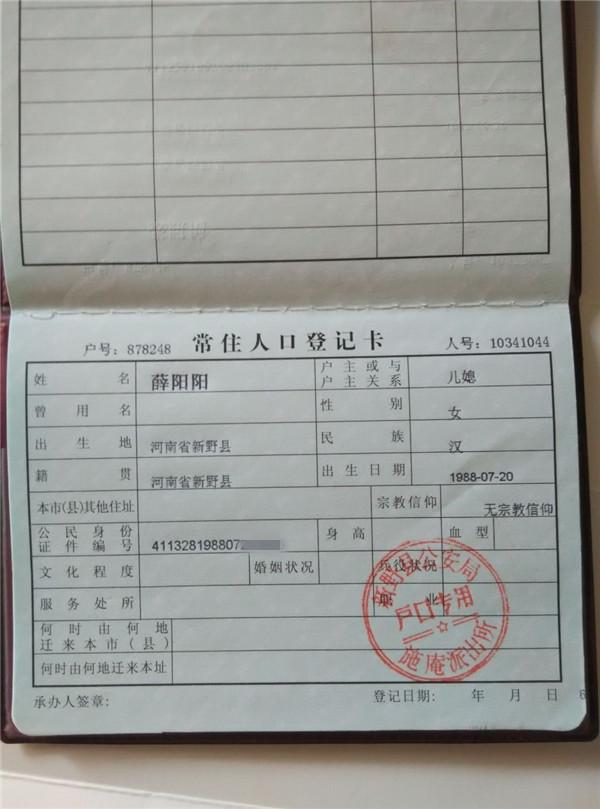 户号: 878248 常住人口登记卡 人号: 10341044
姓名 薛阳阳 户主或与户主关系 儿媳
曾用名 性别 女
出生地 河南省新野县 民族 汉
籍贯 河南省新野县 出生日期 1988-07-20
本市(县)其他住址 宗教信仰 无宗教信仰
公民身份证件编号 4113281988072 身高 血型
文化程度 婚姻状况 兵役状况
服务处所 职业
何时由何地迁来本市(县)
何时由何地迁来本址
承办人签章: 登记日期: 年 月 日
新野县公安局
户口专用
施庵派出所